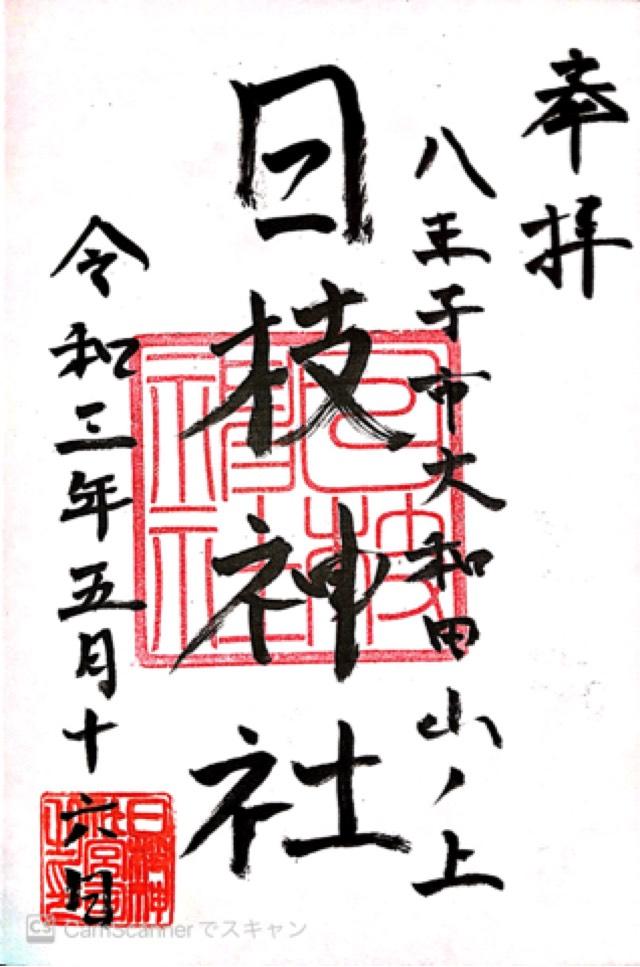 奉拝
八王子市大和田山ノ上
日枝神社
令和三年五月十六日
日枝神社
CamScannerでスキャン